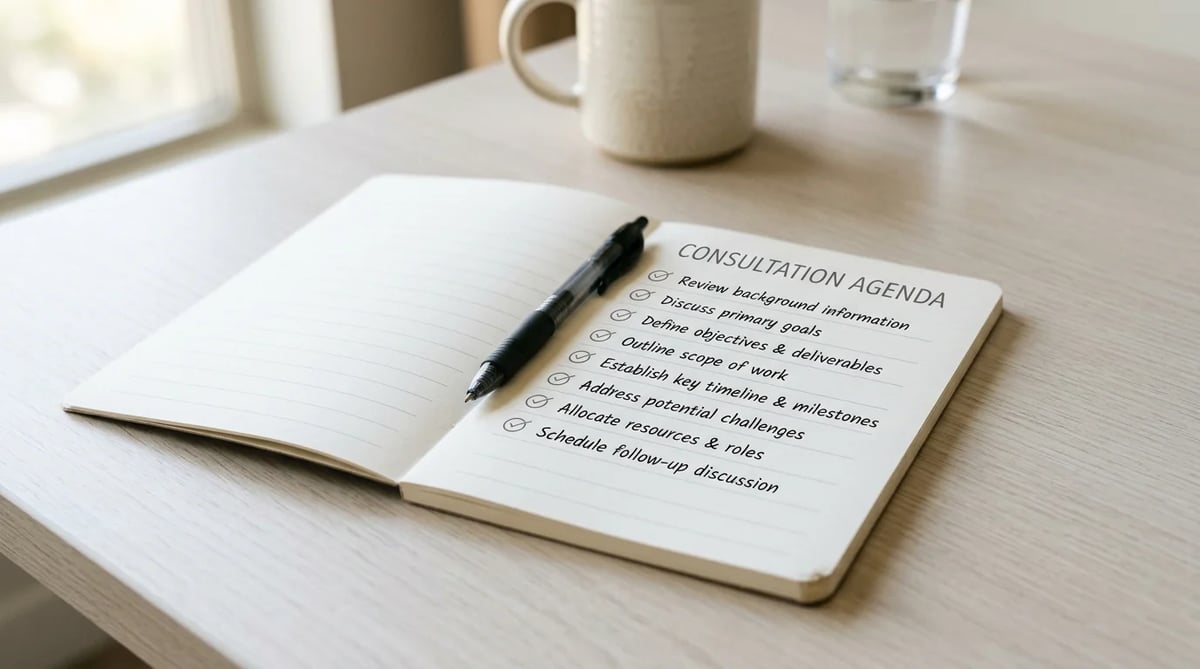 CONSULTATION AGENDA
Review background information
Discuss primary goals
Define objectives & deliverables
Outline scope of work
Establish key timeline & milestones
Address potential challenges
Allocate resources & roles
Schedule follow-up discussion